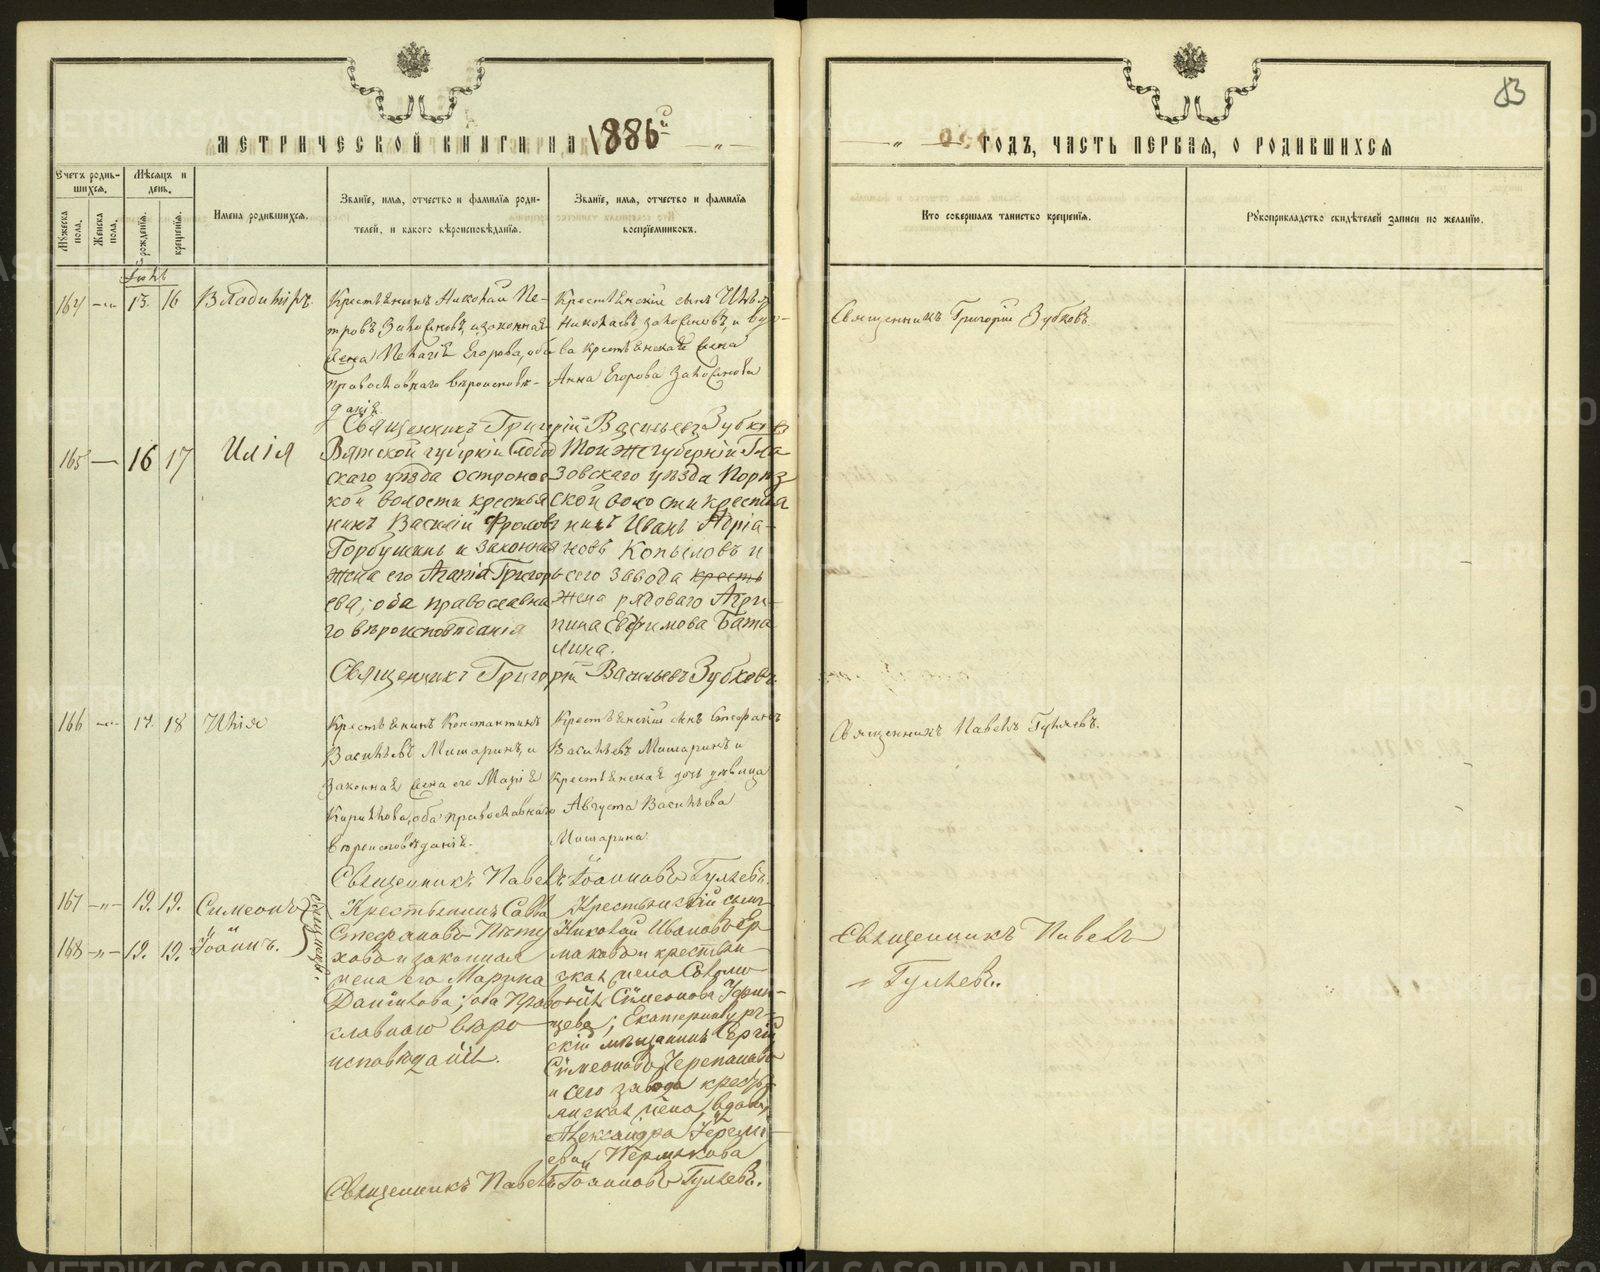 83
МЕТРИЧЕСКОЙ КНИГИ НА 1886й
ГОДЪ, ЧАСТЬ ПЕРВАЯ, О РОДИВШИХСЯ
Счетъ родившихся.
Мѣсяцъ и день.
Мужеска пола.
Женска пола.
рожденія.
крещенія.
Имена родившихся.
Званіе, имя, отчество и фамилія родителей, и какого вѣроисповѣданія.
Званіе, имя, отчество и фамилія воспріемниковъ.
Кто совершалъ таинство крещенія.
Рукоприкладство свидѣтелей записи по желанію.
164 13. 16 Владиміръ.
Крестьянинъ Николай Пе-
тровъ и законная
жена Пелагія Егорова, оба
православнаго вѣроисповѣ-
данія.
Крестьянскій сынъ
Николаевъ и вдо-
ва крестьянская жена
Анна Егорова
Священникъ Григорій Зубковъ
Священникъ Григорій Васильевъ Зубковъ
165 16 17 Илія
Вятской губерніи Слобод
скаго уѣзда
кой волости крестья
нинъ Василій Фроловъ
Горбушинъ и законная
жена его Агапія Григорь
ева; оба православна
го вѣроисповѣданія
Той же губерніи Гла
зовскаго уѣзда
ской волости крестья
нинъ Иванъ Андріа-
новъ Копыловъ и
сего завода кресть
жена рядоваго Агри-
пина Евфимова Бата
лина.
Священникъ Григорій Васильевъ Зубковъ.
166 17. 18 Илія
Крестьянинъ Константинъ
Васильевъ Мишаринъ, и
законная жена его Марія
Кирилова, оба православнаго
вѣроисповѣданія.
Крестьянскій сынъ Стефанъ
Васильевъ Мишаринъ и
крестьянская дочь дѣвица
Августа Васильева
Мишарина.
Священникъ Павелъ Гуляевъ.
Священникъ Павелъ Іоанновъ Гуляевъ.
167 19. 19. Симеонъ
168 19. 19. Іоаннъ.
близнецы.
Крестьянинъ Савва
Стефановъ
и законная
жена его Марина
Данилова; оба право
славнаго вѣро
исповѣданія.
Крестьянскій сынъ
Николай Ивановъ Ер
маковъ и крестьян
ская жена
Симеонова
Екатеринбург-
скій мѣщанинъ Сергій
Симеоновъ Черепановъ
и сего завода кресть
янская жена, вдова,
Александра
ева Пермякова
Священникъ Павелъ
Гуляевъ.
Священникъ Павелъ Іоанновъ Гуляевъ.
METRIKI.GASO-URAL.RU